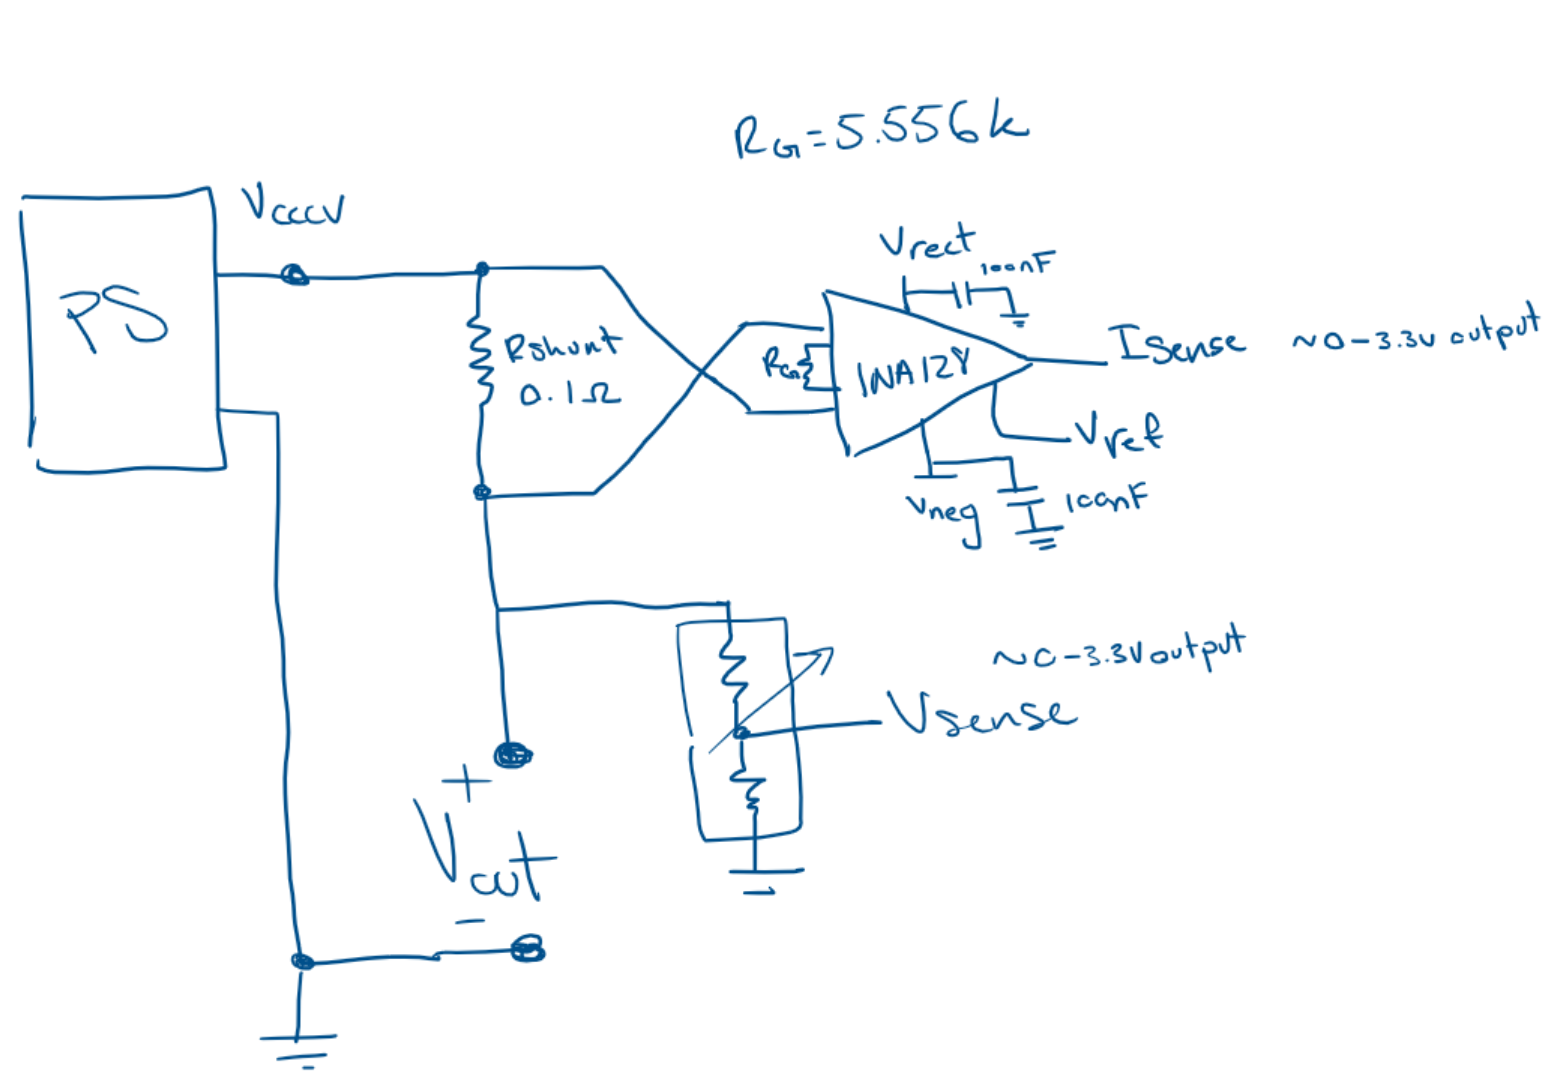 RG=5.556k
Vcccv
PS
Vrect
100nF
Rshunt
0.1Ω
RG
INA12Y
Isense ~0-3.3v output
Vref
Vneg
100nF
~0-3.3V output
Vsense
+
Vout
-